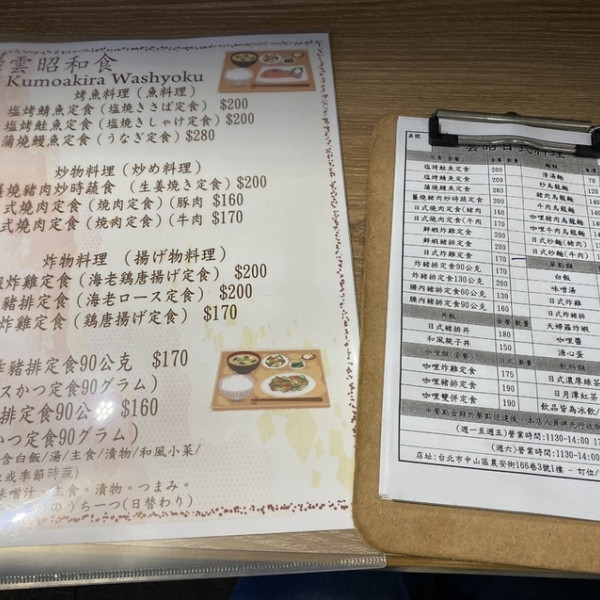 雲昭和食
Kumoakira Washyoku
烤魚料理 (魚料理)
塩烤鯖魚定食 (塩焼きさば定食) $200
塩烤鮭魚定食 (塩焼きしゃけ定食) $200
蒲燒鰻魚定食 (うなぎ定食) $280
炒物料理 (炒め料理)
薑燒豬肉炒時蔬食 (生姜焼き定食) $200
式燒肉定食 (焼肉定食) (豚肉 $160
式燒肉定食 (焼肉定食) (牛肉 $170
炸物料理 (揚げ物料理)
炸雞定食 (海老鶏唐揚げ定食) $200
豬排定食 (海老ロース定食) $200
炸雞定食 (鶏唐揚げ定食) $170
豬排定食90公克 $170
スかつ定食90グラム)
排定食90公克 $160
かつ定食90グラム)
含白飯/湯/主食/漬物/和風小菜/
或季節時蔬)
味噌汁。主食。漬物。つまみ。
のうち一つ(日替わり)
桌號
雲昭日式料理
定食(套餐) 套餐 數量
塩烤鯖魚定食 200
塩烤鮭魚定食 200
蒲燒鰻魚定食 280
薑燒豬肉炒時蔬定食 200
日式燒肉定食(豬肉 160
日式燒肉定食(牛肉 170
鮮蝦炸雞定食 200
鮮蝦豬排定食 200
日式炸雞定食 170
炸豬排定食90公克 170
炸豬排定食130公克 200
腰內豬排定食60公克 130
腰內豬排定食90公克 160
丼飯 套餐 數量
日式豬排丼 180
和風親子丼 140
咖哩類(套餐) 日式 數量
咖哩炸雞定食 175
咖哩豬排定食 190
咖哩雙併定食 190
麵類
清湯麵 70
炒烏龍麵 120
豬肉烏龍麵 140
牛肉烏龍麵
咖哩豬肉烏龍麵
咖哩牛肉烏龍麵
日式炒麵(豬肉)
日式炒麵(牛肉)
單點類
白飯
味噌湯
日式炸雞
日式炸豬排
天婦羅炸蝦
咖哩醬
溏心蛋
飲料類
日式濃厚綠茶
日月潭紅茶
飲品皆為冰飲/
(週一至週五)營業時間:1130-14:00 17
(週六)營業時間:1130-14:00
店址:台北市中山區農安街166巷3號1樓 - 訂位/